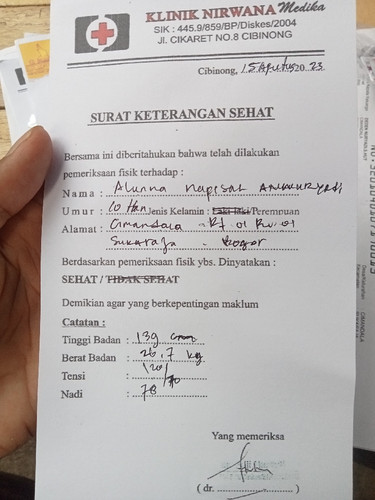 KLINIK NIRWANA Medika
SIK : 445.9/859/BP/Diskes/2004
Jl. CIKARET NO.8 CIBINONG
Cibinong, 15 Agustus 20 23
SURAT KETERANGAN SEHAT
Bersama ini diberitahukan bahwa telah dilakukan
pemeriksaan fisik terhadap :
Nama : Alunna
Umur : 10 thn Jenis Kelamin : Laki-laki/Perempuan
Alamat : Cimandala - Rt 01 Rw 01
Sukaraja - Bogor
Berdasarkan pemeriksaan fisik ybs. Dinyatakan :
SEHAT / TIDAK SEHAT
Demikian agar yang berkepentingan maklum
Catatan :
Tinggi Badan : 139 cm
Berat Badan : 26,7 kg
Tensi : 120/70
Nadi : 78
Yang memeriksa
( dr. )